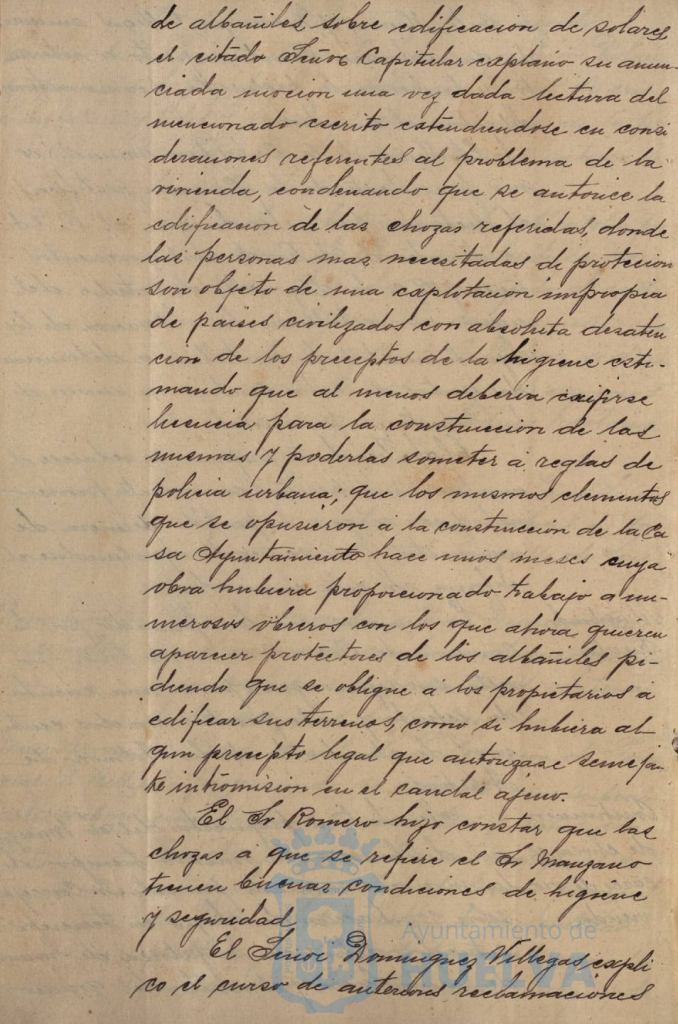 de albañiles sobre edificacion de solares,
el citado Señor Capitular esplanó su anun-
ciada mocion una vez dada lectura del
mencionado escrito estendiendose en consi
deraciones referentes al problema de la
vivienda, condenando que se autorice la
edificacion de las chozas referidas, donde
las personas mas necesitadas de proteccion
son objeto de una explotacion impropia
de paises civilizados con absoluta desaten
cion de los preceptos de la higiene esti-
mando que al menos deberia exijirse
licencia para la construccion de las
mismas y poderlas someter á reglas de
policia urbana; que los mismos elementos
que se opusieron á la construccion de la Ca
sa Ayuntamiento hace unos meses cuya
obra hubiera proporcionado trabajo a nu-
merosos obreros con los que ahora quieren
aparecer protectores de los albañiles pi-
diendo que se obligue á los propietarios á
edificar sus terrenos, como si hubiera al
gun precepto legal que autorizase semejan-
te intromision en el caudal ajeno.
El Sr Romero hizo constar que las
chozas a que se refiere el Sr Manzano
tienen buenas condiciones de higiene
y seguridad
El Señor Dominguez Villegas, expli
co el curso de anteriores reclamaciones
Ayuntamiento de
HUELVA